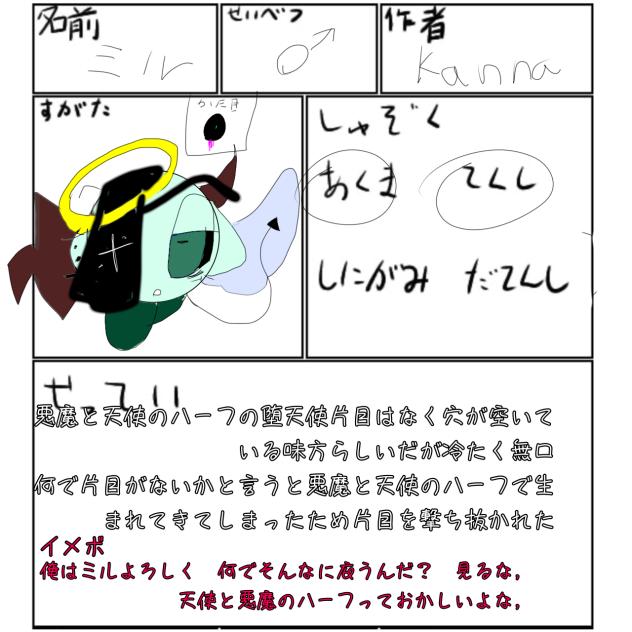 名前
ミル
せいべつ
♂
作者
Kanna
すがた
かた目
しゅぞく
あくま　てんし
しにがみ　だてんし
せってい
悪魔と天使のハーフの堕天使片目はなく穴が空いて
いる味方らしいだが冷たく無口
何で片目がないかと言うと悪魔と天使のハーフで生
まれてきてしまったため片目を撃ち抜かれた
イメボ
俺はミルよろしく　何でそんなに庋うんだ?　見るな,
天使と悪魔のハーフっておかしいよな,